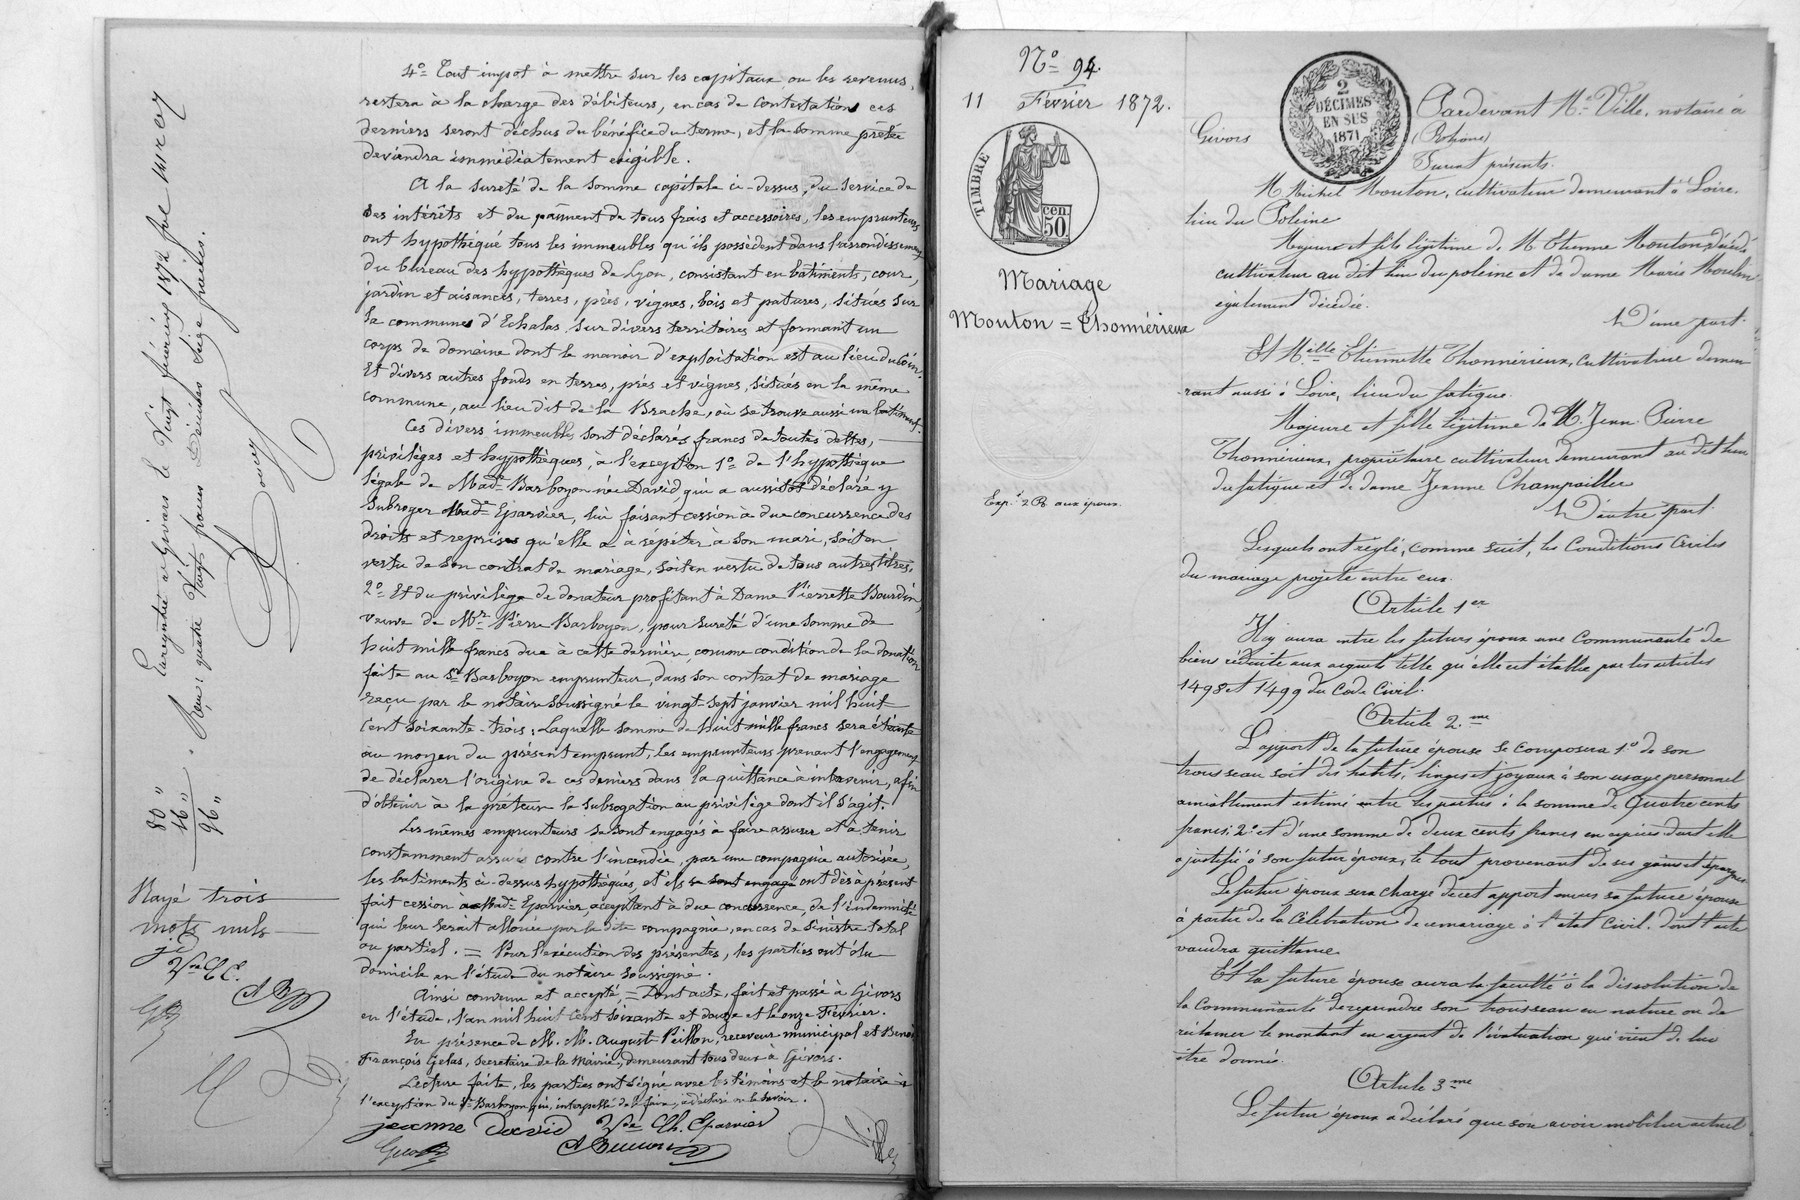 4º Tout impot à mettre sur les capitaux ou les revenus,
restera à la charge des débiteurs, en cas de contestations ces
derniers seront déchus du bénéfice du terme, et la somme prêtée
deviendra immédiatement exigible.
A la sureté de la somme capitale ci-dessus, du service de
ses intérêts et du païment de tous frais et accessoires, les emprunteurs
ont hypothéqué tous les immeubles qu'ils possèdent dans l'arrondissement
du bureau des hypothèques de Lyon, consistant en bâtiments, cour,
jardin et aisances, terres, près, vignes, bois et patures, situés sur
la commune d'Echalas, sur divers territoires et formant un
corps de domaine dont le manoir d'exploitation est au lieu du Coin.
Et divers autres fonds en terres, près et vignes, situés en la même
commune, au lieu dit de la Brache, où se trouve aussi un batiment.
Ces divers immeubles sont déclarés francs de toutes dettes,
privilèges et hypothèques, à l'exception 1º de l'hypothèque
légale de Made Barboyon née David, qui a aussitot déclaré y
Subroger Made Eparvier, lui faisant cession à due concurrence des
droits et reprises qu'elle a à répéter a son mari, soit en
vertu de son contrat de mariage, soit en vertu de tous autres titres.
2º Et du privilège de donateur profitant à Dame Pierrette Bourdin,
veuve de Mr Pierre Barboyon, pour sureté d'une somme de
huit mille francs due à cette dernière, comme condition de la donation
faite au Sr Barboyon emprunteur, dans son contrat de mariage
reçu par le notaire soussigné le vingt-sept janvier mil huit
cent soixante-trois; Laquelle somme de huit mille francs sera éteinte
au moyen du présent emprunt, les emprunteurs prenant l'engagement
de déclarer l'origine de ces deniers dans la quittance à intervenir, afin
d'obtenir à la prêteur la subrogation au privilège dont il s'agit.
Les mêmes emprunteurs se sont engagés à faire assurer et à tenir
constamment assurés contre l'incendie, par une compagnie autorisée,
les batiments ci-dessus hypothéqués, et ils se sont engagé ont dès à présent
fait cession à Made Eparvier, acceptant à due concurrence, de l'indemnité
qui leur serait allouée par la dite compagnie, en cas de sinistre total
ou partiel. = Pour l'exécution des présentes, les parties ont élu
domicile en l'étude du notaire soussigné.
Ainsi convenu et accepté, = Dont acte, fait et passé à Givors
en l'étude, l'an mil huit cent soixante et douze et le onze Février.
En présence de M. M. August Peillon, receveur municipal et
François Gelas, Secrétaire de la Mairie, demeurant tous deux à Givors.
Lecture faite, les parties ont signé avec les témoins et le notaire à
l'exception du Sr Barboyon qui, interpellé de le faire, a déclaré ne le savoir.
jeanne David Vve Ch. Eparvier
Enregistré à Givors le Vingt février 1872 fol
Reçu: quatre Vingt francs Décimes Seize francs.
80 "
16 "
96 "
Rayé trois
mots nuls
J D
Vve C E.
Nº 94.
11 Février 1872.
TIMBRE
50 cen
Mariage
Mouton = Thonnérieux
Exp. 2 R. aux époux.
2
DÉCIMES
EN SUS
1871
Pardevant Me Ville, notaire à
Givors (Rhône)
Furent présents.
M. Michel Mouton, cultivateur demeurant à Loire,
lieu du Poleine
Majeur et fils légitime de M. Etienne Mouton, décédé
cultivateur au dit lieu du poleine et de dame Marie
également décédée.
D'une part.
Et Melle Etiennette Thonnérieux, cultivatrice demeu-
rant aussi à Loire, lieu du fatigue.
Majeure et fille légitime de M. Jean Pierre
Thonnérieux, propriétaire cultivateur demeurant au dit lieu
du fatigue et de dame Jeanne Champaillier
D'autre part.
Lesquels ont réglé, comme suit, les Conditions Civiles
du mariage projeté entre eux.
Article 1er
Il y aura entre les futurs époux une Communauté de
biens réduite aux acquets telle qu'elle est établie par les articles
1498 et 1499 du Code Civil.
Article 2.me
L'apport de la future épouse se composera 1º de son
trousseau soit des habits, linges et joyaux à son usage personnel
amiablement estimé entre les parties à la somme de Quatre cents
francs; 2º et d'une somme de deux cents francs en espèces dont elle
a justifié à son futur époux, le tout provenant de ses gains et épargnes
Le futur époux sera chargé de cet apport envers sa future épouse
à partir de la Célébration de ce mariage à l'état Civil, dont l'acte
vaudra quittance.
Et la future épouse aura la faculté à la dissolution de
la Communauté de reprendre son trousseau en nature ou de
réclamer le montant en argent de l'évaluation qui vient de lui
être donnée.
Article 3me
Le futur époux a déclaré que son avoir mobilier actuel